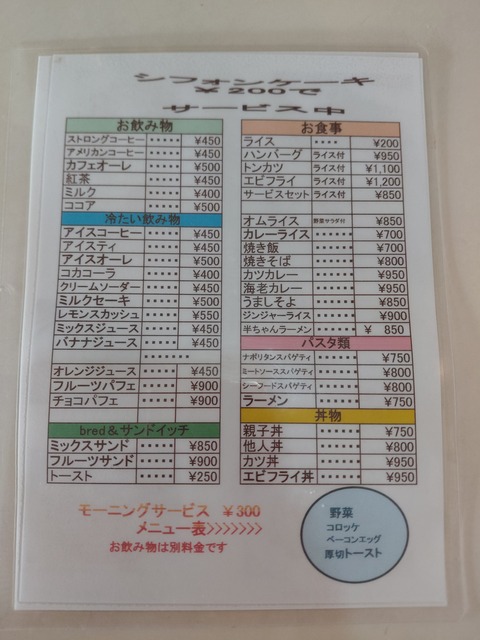 シフォンケーキ
￥200で
サービス中
お飲み物
ストロングコーヒー ····· ¥450
アメリカンコーヒー ····· ¥450
カフェオーレ ····· ¥500
紅茶 ····· ¥450
ミルク ····· ¥400
ココア ····· ¥500
冷たい飲み物
アイスコーヒー ····· ¥450
アイスティ ····· ¥450
アイスオーレ ····· ¥500
コカコーラ ····· ¥400
クリームソーダー ····· ¥450
ミルクセーキ ····· ¥500
レモンスカッシュ ····· ¥550
ミックスジュース ····· ¥450
バナナジュース ····· ¥450
·······
オレンジジュース ····· ¥450
フルーツパフェ ····· ¥900
チョコパフェ ····· ¥900
bred＆サンドイッチ
ミックスサンド ····· ¥850
フルーツサンド ····· ¥900
トースト ····· ¥250
お食事
ライス ···· ¥200
ハンバーグ ライス付 ¥950
トンカツ ライス付 ¥1,100
エビフライ ライス付 ¥1,200
サービスセット ライス付 ¥850
オムライス 野菜サラダ付 ¥850
カレーライス ····· ¥700
焼き飯 ····· ¥700
焼きそば ····· ¥800
カツカレー ····· ¥950
海老カレー ····· ¥950
うましそよ ····· ¥850
ジンジャーライス ····· ¥900
半ちゃんラーメン ····· ￥ 850
パスタ類
ナポリタンスパゲティ ····· ¥750
ミートソーススパゲティ ····· ¥800
シーフードスパゲティ ····· ¥800
ラーメン ····· ¥750
丼物
親子丼 ····· ¥750
他人丼 ····· ¥800
カツ丼 ····· ¥950
エビフライ丼 ····· ¥950
モーニングサービス ￥300
メニュー表>>>>>>>
お飲み物は別料金です
野菜
コロッケ
ベーコンエッグ
厚切トースト